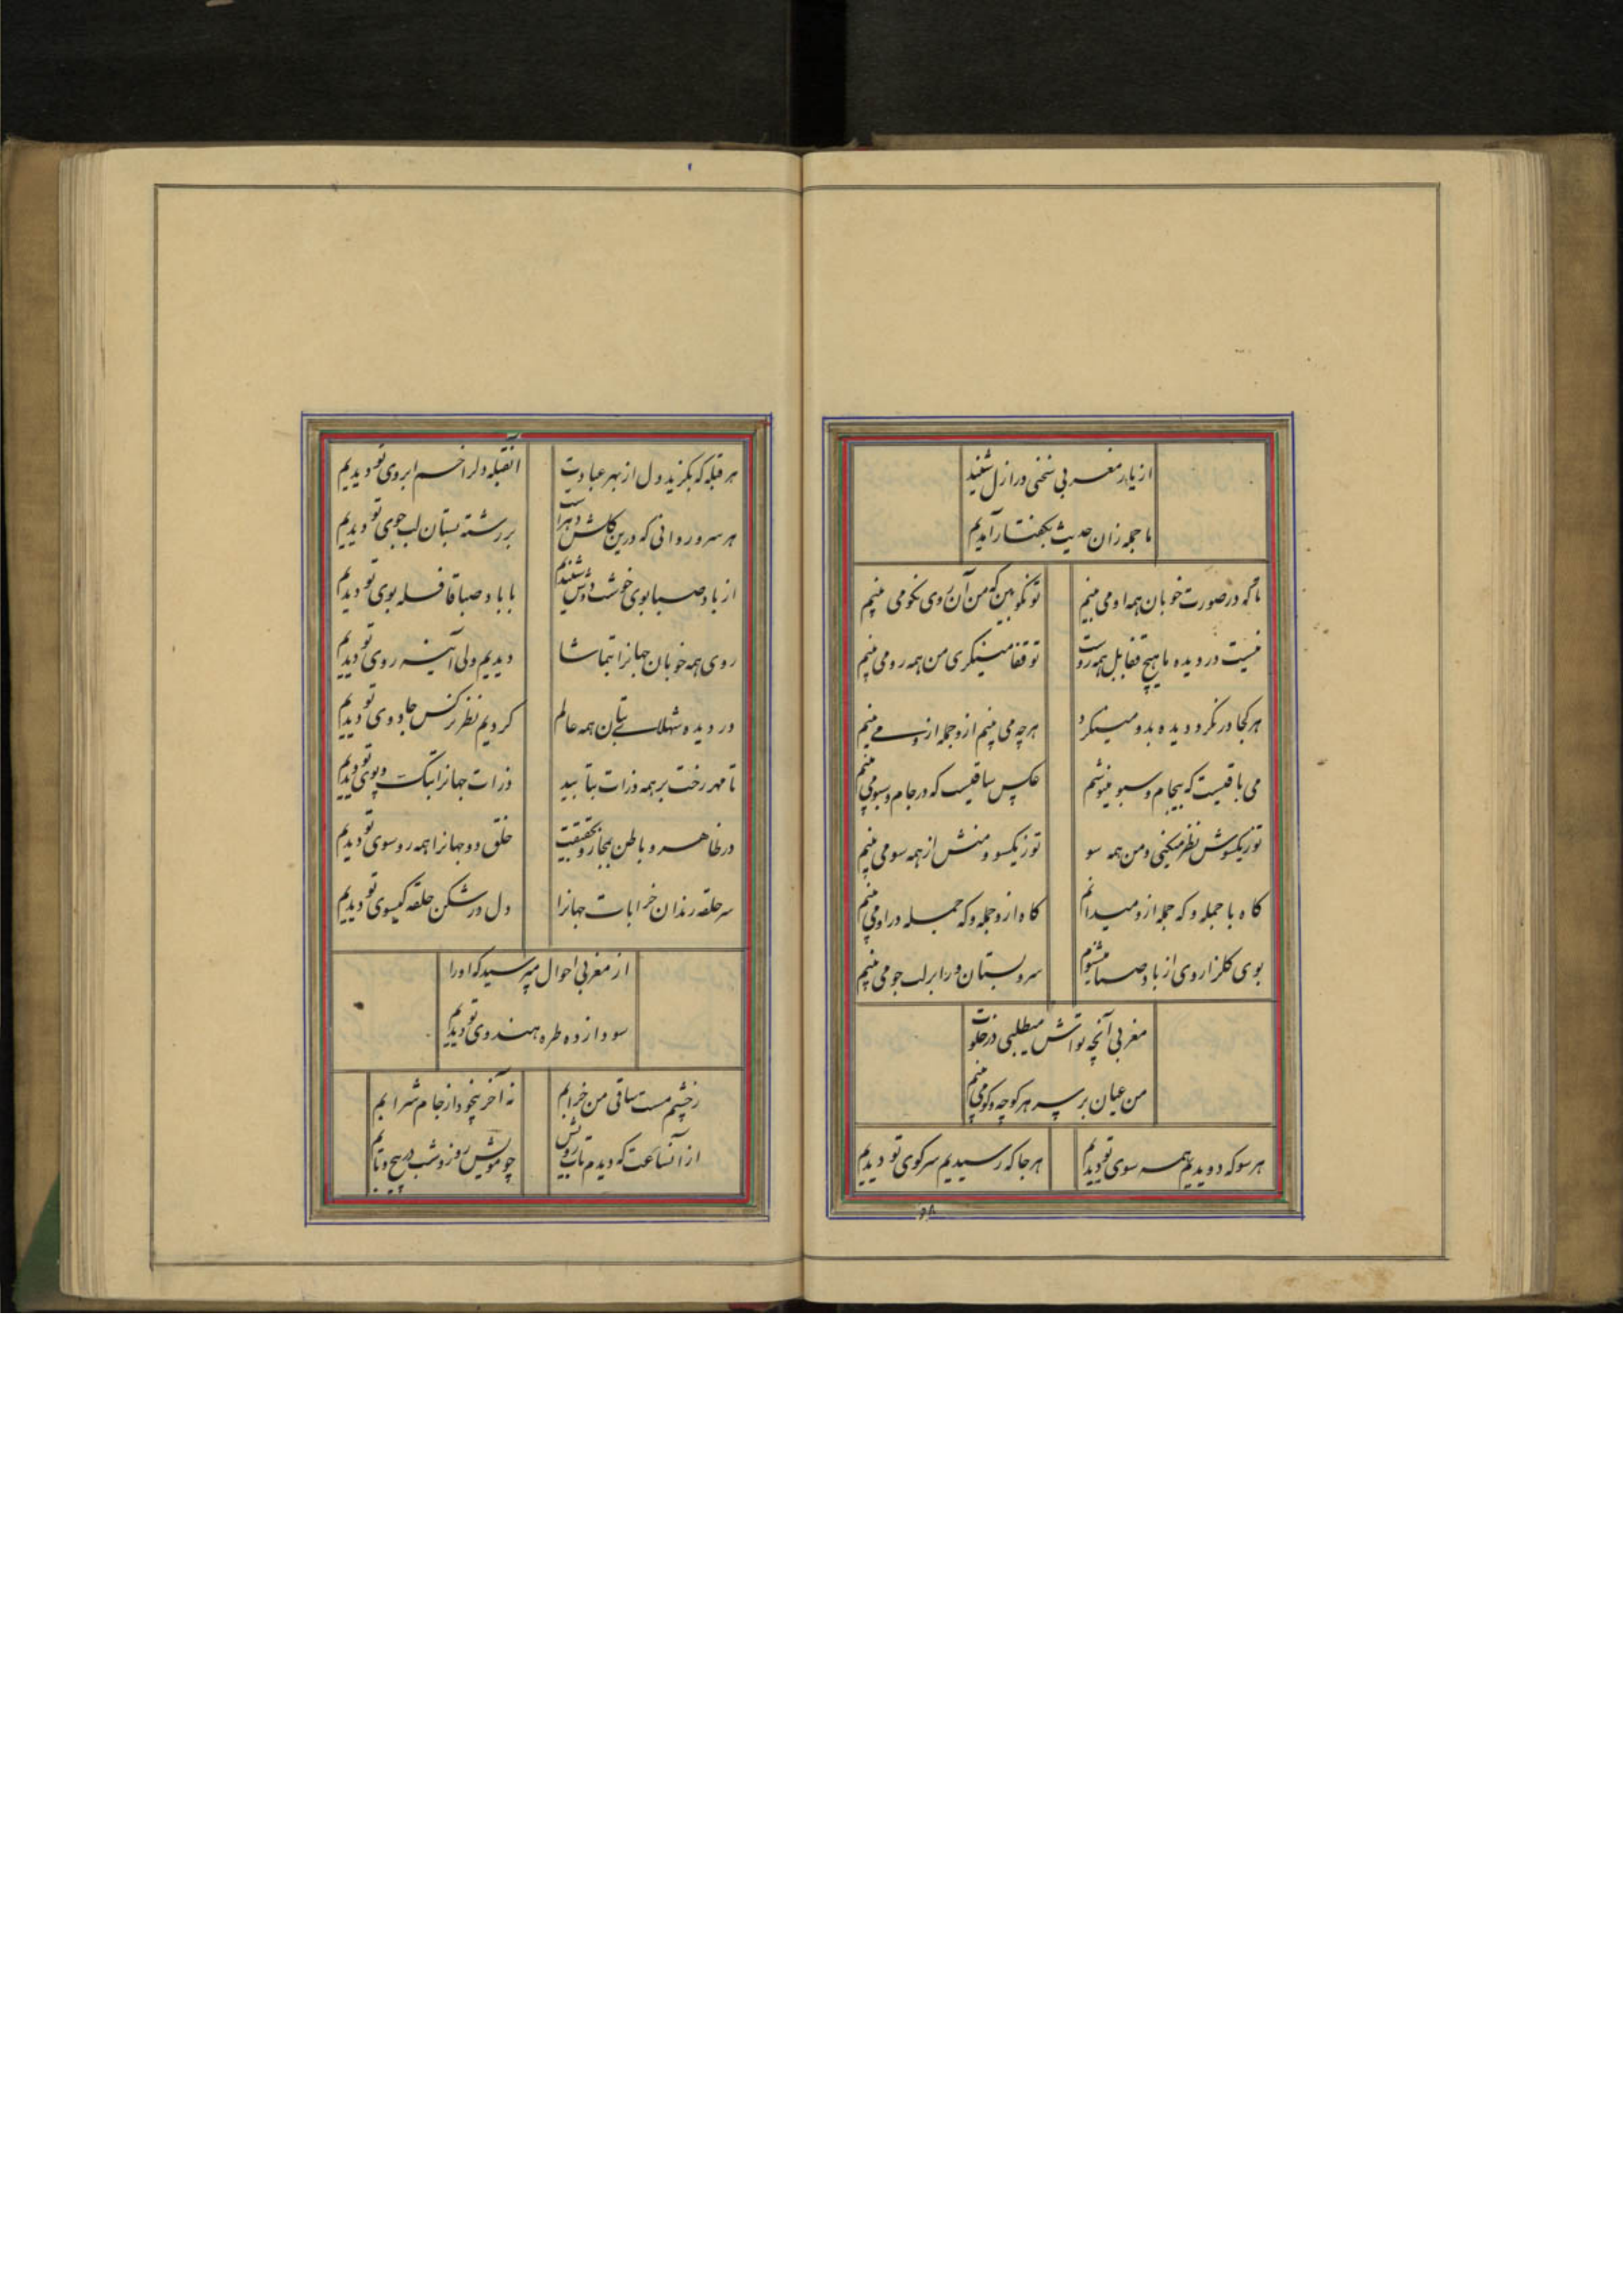 از یار مغربی سخنی در ازل شنید
ما جمله زان حدیث بگفتار آمدیم
ما که در صورت خوبان همه او می بینم
تو نکو بین که من آن روی نکو می بینم
نیست در دیده ما هیچ قفا بل همه روست
تو قفا مینگری من همه رو می بینم
هر کجا درنکرد دیده بدو مینکرد
هرچه می بینم ازو جمله ازو می بینم
می باقیست که بیجام و سبو مینوشم
عکس ساقیست که در جام و سبو می بینم
تو ز یکسوش نظر میکنی و من همه سو
تو ز یکسو و منش از همه سو می بینم
کاه با جمله و که جمله ازو میدانم
کاه ازو جمله و که جمله در او می بینم
بوی کلزار وی از باد صبا میشنوم
سرو بستان ورا بر لب جو می بینم
مغربی آنچه تواش میطلبی در خلوت
من عیان بر سر هر کوچه و کو می بینم
هر سو که دویدیم همه سوی تو دیدیم
هر جا که رسیدیم سر کوی تو دیدیم
۵۸
هر قبله که بکزید دل از بهر عبادت
آنقبله دلرا خم ابروی تو دیدیم
هر سرو روانی که درین کلشن دهر است
بر رشته بستان لب جوی تو دیدیم
از باد صبا بوی خوشت دوش شنیدیم
با باد صبا قافله بوی تو دیدیم
روی همه خوبان جهانرا بتماشا
دیدیم ولی آینه روی تو دیدیم
در دیده شهلای بتان همه عالم
کردیم نظر نرکس جادوی تو دیدیم
تا مهر رخت بر همه ذرات بتابید
ذرات جهانرا بتک و پوی تو دیدیم
در ظاهر و باطن بمجاز و بحقیقت
خلق دو جهانرا همه رو سوی تو دیدیم
سر حلقه رندان خرابات جهانرا
دل در شکن حلقه کیسوی تو دیدیم
از مغربی احوال مپرسید که اورا
سودا زده طره هندوی تو دیدیم
ز چشم مست ساقی من خرابم
نه آخر بیخود از جام شرابم
از آنساعت که دیدم تاب رویش
چو مویش روز و شب در پیچ و تابم